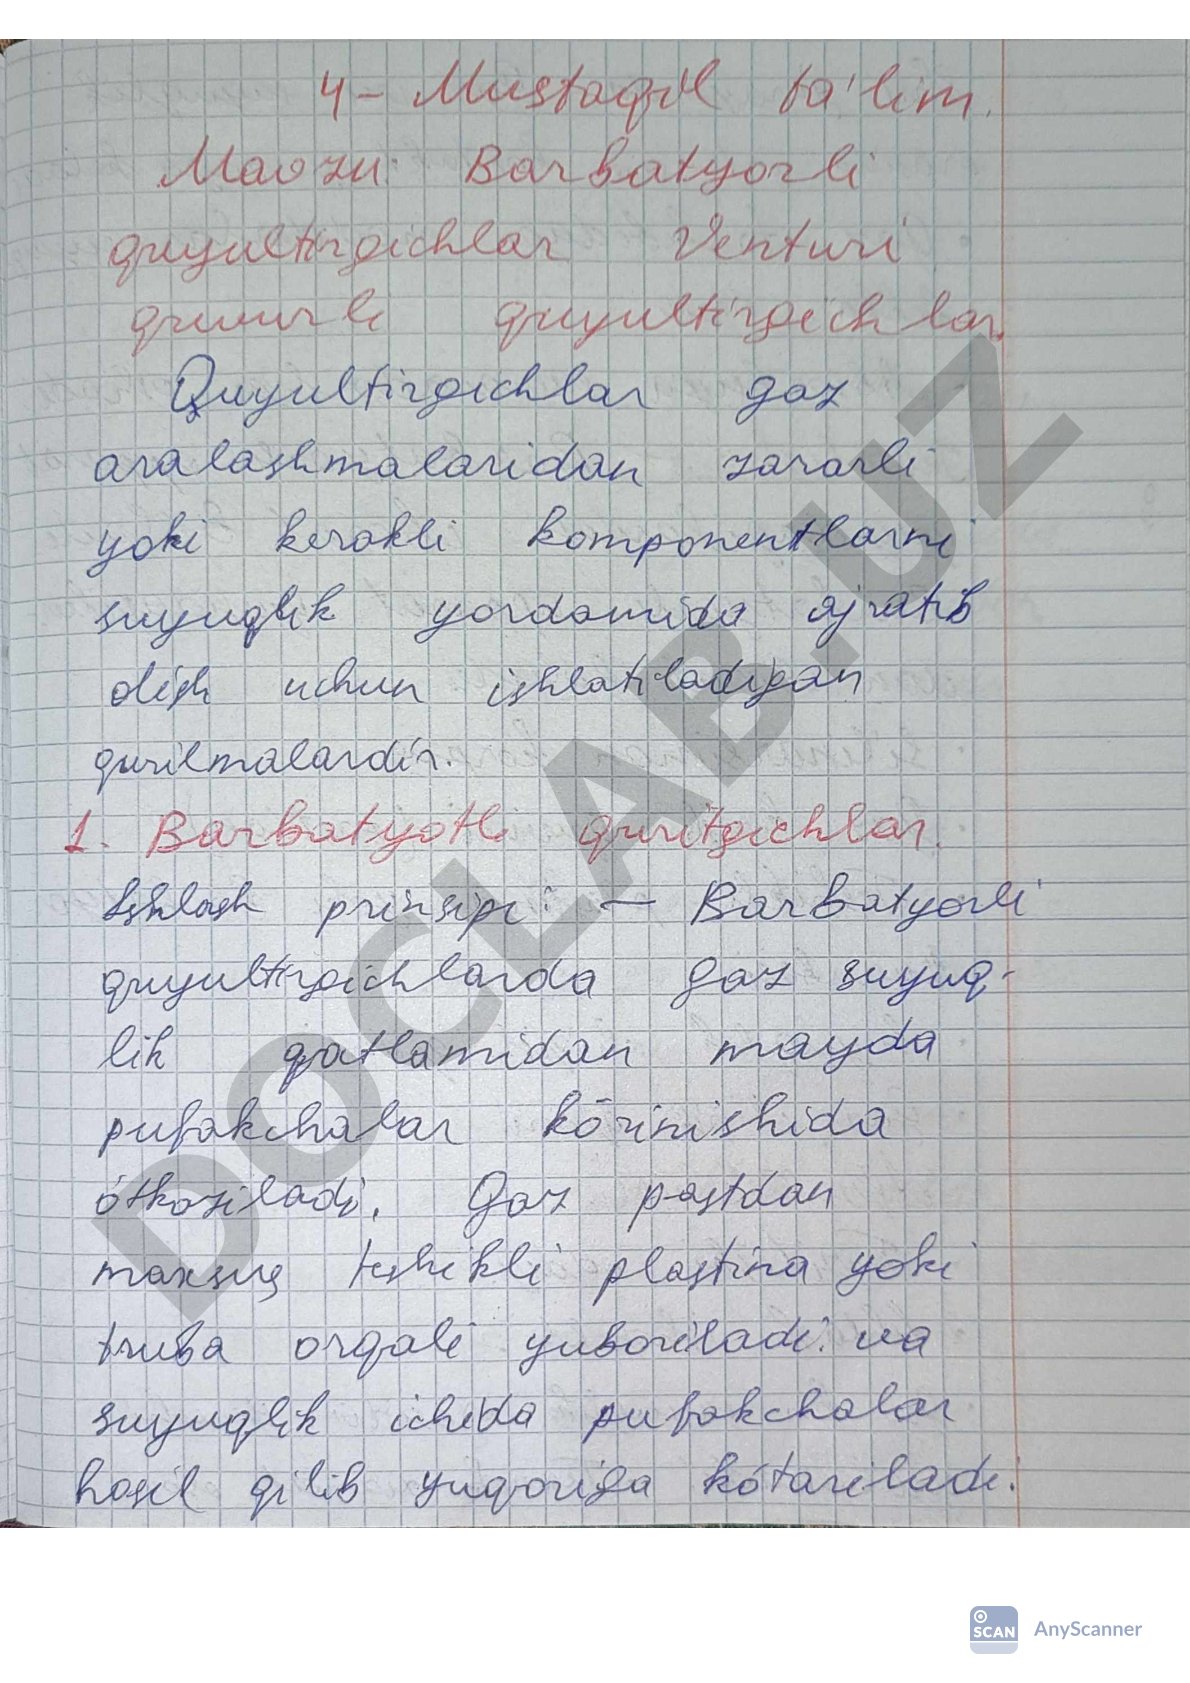 4 - Mustaqil ta'lim.
Mavzu: Barbatyorli
quyultirgichlar Venturi
quvurli quyultirgichlar.
Quyultirgichlar gaz
aralashmalaridan zararli
yoki kerakli komponentlarni
suyuqlik yordamida ajratib
olish uchun ishlatiladigan
qurilmalardir.
1. Barbatyotli quritgichlar.
Ishlash prinsipi: - Barbatyorli
quyultirgichlarda gaz suyuq-
lik qatlamidan mayda
pufakchalar kōrinishida
ótkaziladi. Gaz pastdan
maxsus teshikli plastina yoki
truba orqali yuboriladi. va
suyuqlik ichida pufakchalar
hosil qilib yuqoriga kótariladi.
DOCLAB.UZ
SCAN AnyScanner